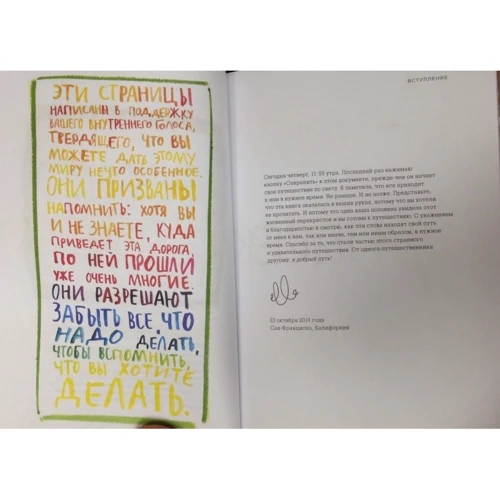 ЭТИ СТРАНИЦЫ
НАПИСАНЫ В ПОДДЕРЖКУ
ВАШЕГО ВНУТРЕННЕГО ГОЛОСА,
ТВЕРДЯЩЕГО, ЧТО ВЫ
МОЖЕТЕ ДАТЬ ЭТОМУ
МИРУ НЕЧТО ОСОБЕННОЕ.
ОНИ ПРИЗВАНЫ
НАПОМНИТЬ: ХОТЯ ВЫ
И НЕ ЗНАЕТЕ, КУДА
ПРИВЕДЕТ ЭТА ДОРОГА,
ПО НЕЙ ПРОШЛИ
УЖЕ ОЧЕНЬ МНОГИЕ.
ОНИ РАЗРЕШАЮТ
ЗАБЫТЬ ВСЕ, ЧТО
НАДО ДЕЛАТЬ,
ЧТОБЫ ВСПОМНИТЬ,
ЧТО ВЫ ХОТИТЕ
ДЕЛАТЬ.
ВСТУПЛЕНИЕ
Сегодня четверг, 11:55 утра. Последний раз нажимаю
кнопку «Сохранить» в этом документе, прежде чем он начнет
свое путешествие по свету. Я заметила, что все приходит
к нам в нужное время. Не раньше. И не позже. Представьте,
что эта книга оказалась в ваших руках, потому что вы хотели
ее прочитать. И потому что одна ваша половина увидела этот
жизненный перекресток и вы готовы к путешествию. С уважением
и благодарностью я смотрю, как эти слова находят свой путь
от меня к вам, так или иначе, тем или иным образом, в нужное
время. Спасибо за то, что стали частью этого странного
и удивительного путешествия. От одного путешественника
другому: в добрый путь!
23 октября 2014 года
Сан-Франциско, Калифорния